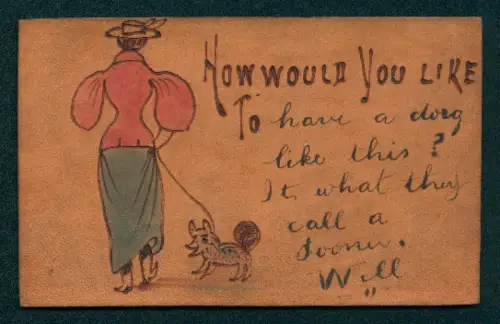 HOW WOULD YOU LIKE
TO have a dorg
like this?
It what they
call a
Sooner.
Will